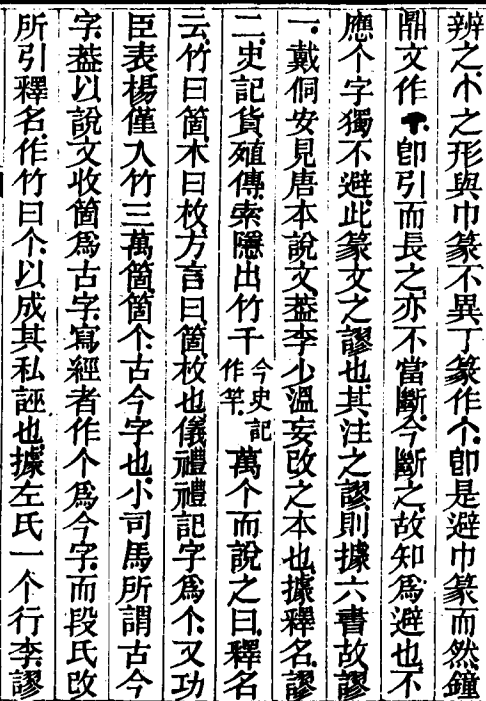 辨之个之形與巾篆不異丁篆作个卽是避巾篆而然鐘
鼎文作卽引而長之亦不當斷今斷之故知爲避也不
應个字獨不避此篆文之謬也其注之謬則據六書故謬
一戴侗安見唐本說文葢李少溫妄改之本也據釋名謬
二史記貨殖傳索隱出竹千今史記作竿萬个而說之曰釋名
云竹曰箇木曰枚方言曰箇枚也儀禮禮記字爲个又功
臣表楊僅入竹三萬箇箇个古今字也小司馬所謂古今
字葢以說文收箇爲古字寫經者作个爲今字而段氏改
所引釋名作竹曰个以成其私誣也據左氏一个行李謬